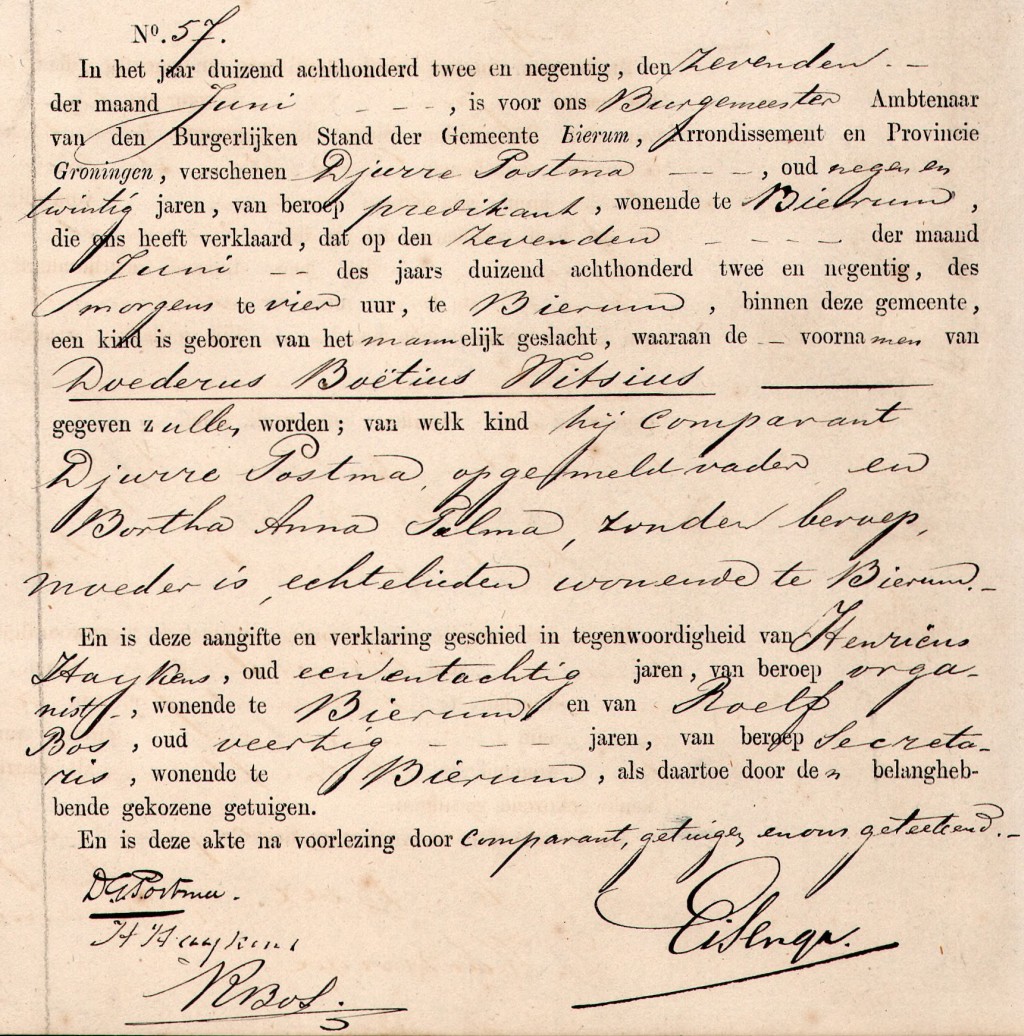 No. 57.
In het jaar duizend achthonderd twee en negentig, den zevenden. –
der maand Juni – – –, is voor ons Burgemeester Ambtenaar
van den Burgerlijken Stand der Gemeente Bierum, Arrondissement en Provincie
Groningen, verschenen Djurre Postma – – –, oud negen en
twintig jaren, van beroep predikant, wonende te Bierum,
die ons heeft verklaard, dat op den zevenden – – – – der maand
Juni – – des jaars duizend achthonderd twee en negentig, des
morgens te vier uur, te Bierum, binnen deze gemeente,
een kind is geboren van het mannelijk geslacht, waaraan de – voornamen van
Doederus Boëtius Witsius
gegeven zullen worden; van welk kind hij comparant
Djurre Postma, opgemeld vader en
Bortha Anna Palma, zonder beroep,
moeder is, echtelieden wonende te Bierum. –
En is deze aangifte en verklaring geschied in tegenwoordigheid van Henricus
Haykens, oud een en tachtig jaren, van beroep orga-
nist –, wonende te Bierum en van Roelf
Bos, oud veertig – – – jaren, van beroep Secreta-
ris, wonende te Bierum, als daartoe door den belangheb-
bende gekozene getuigen.
En is deze akte na voorlezing door comparant, getuigen en ons geteekend. –
D. G. Postma.
H Haykens
R Bos.